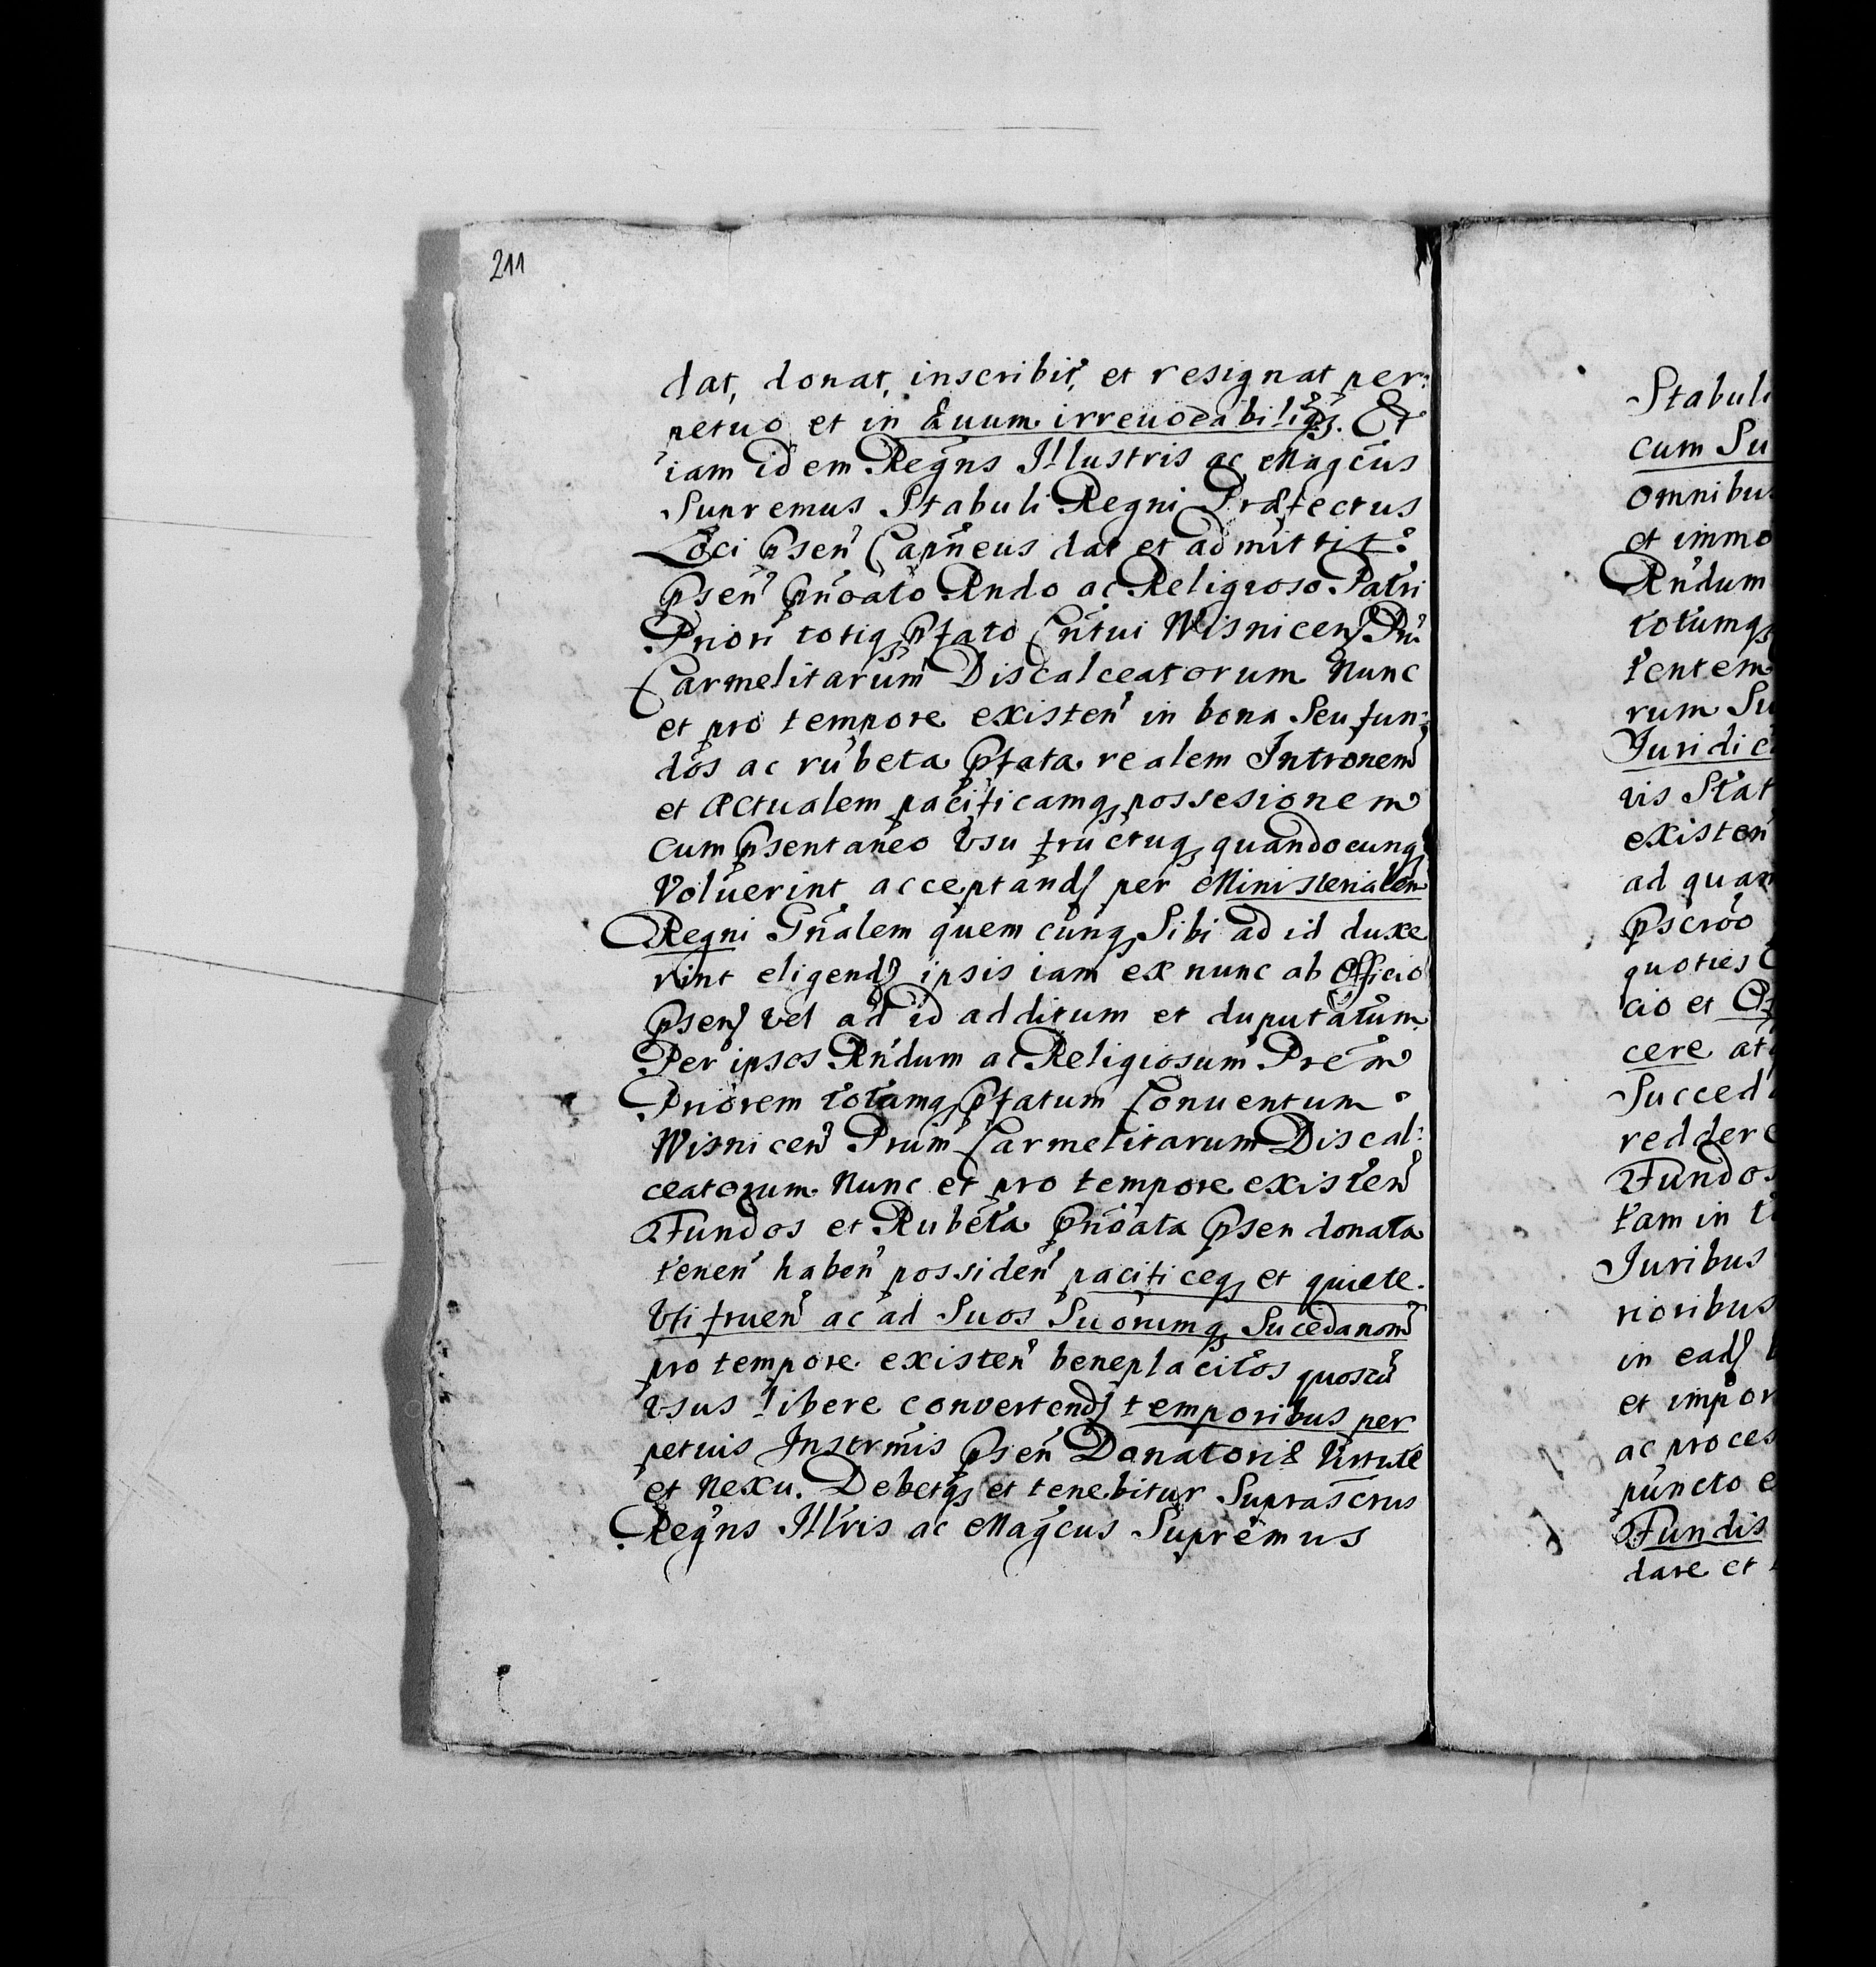 211
dat, donat, inscribit, et resignat per:
petuo et in æuum irreuocabiliqz. Et
iam idem Regñs Illustris ac Magcus
Supremus Stabuli Regni Præfectus
Loci psen Capneus dat et admittit
psen pnoato Rndo ac Religioso Patri
Priori totiq pfato Cntui Wisnicen Pm
Carmelitarum Discalceatorum Nunc
et pro tempore existen in bona Seu fun:
dos ac rubeta pfata realem Intronem
et Actualem pacificamq possesionem
cum psentaneo Vsu fructuq quandocunq
Voluerint acceptand per Ministerialem
Regni Gnalem quem cunq Sibi ad id duxe
rint eligend ipsis iam ex nunc ab Officio
psen vel ad id additum et duputatum
Per ipsos Rndum ac Religiosum Prem
Priorem totamq pfatum Conuentum
Wisnicen Prum Carmelitarum Discal:
ceatorum Nunc et pro tempore existen
Fundos et Rubeta pnoata psen donata
tenen haben possiden pacificeq et quiete
Vti fruen ac ad Suos Suorumq Sucedanom
pro tempore existen beneplacitos quoscu
Vsus libere convertend temporibus per
petuis Inscrmis psen Donatoriæ Virtute
et Nexu. Debetq et tenebitur Suprascrus
Regns Illris ac Magcus Supremus
Stabuli
cum Su
omnibus
et immo
Rndum
totumq
tentem
rum Su
Juridic
vis Stat
existen
ad quam
pscroo
quoties
cio et
cere at
Succed
reddere
Fundos
tam in
Juribus
rioribus
in ead
et impor
ac proces
puncto e
Fundis
dare et